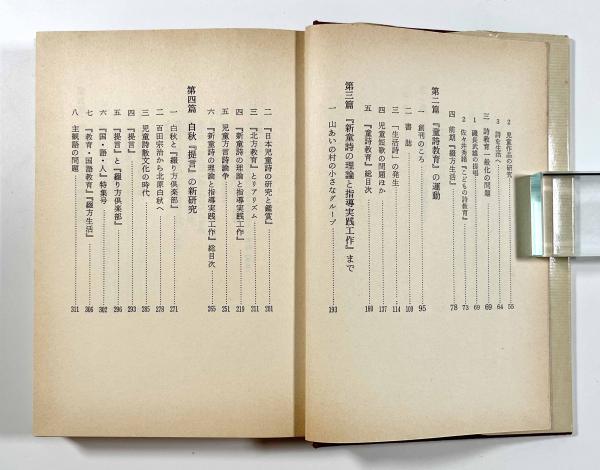 2 児童作品の研究 55
3 詩を生活へ 64
三 詩教育一般化の問題 69
1 磯長武雄の提唱 69
2 佐々井秀緒『こどもの詩教育』 73
四 前期『綴方生活』 78
第二篇 『童詩教育』の運動
一 創刊のころ 95
二 書誌 109
三 「生活詩」の発生 114
四 児童短歌の問題ほか 137
五 『童詩教育』総目次 169
第三篇 『新童詩の理論と指導実践工作』まで
一 山あいの村の小さなグループ 193
二 『日本児童詩の研究と鑑賞』 201
三 『北方教育』とリアリズム 211
四 『新童詩の理論と指導実践工作』 219
五 児童方言詩論争 251
六 『新童詩の理論と指導実践工作』総目次 265
第四篇 白秋『提言』の新研究
一 白秋と『綴り方倶楽部』 271
二 百田宗治から北原白秋へ 278
三 児童詩散文化の時代 285
四 『提言』 293
五 『提言』と『綴り方倶楽部』 296
六 『国・語・人』特集号 302
七 『教育・国語教育』『綴方生活』 306
八 主観語の問題 311